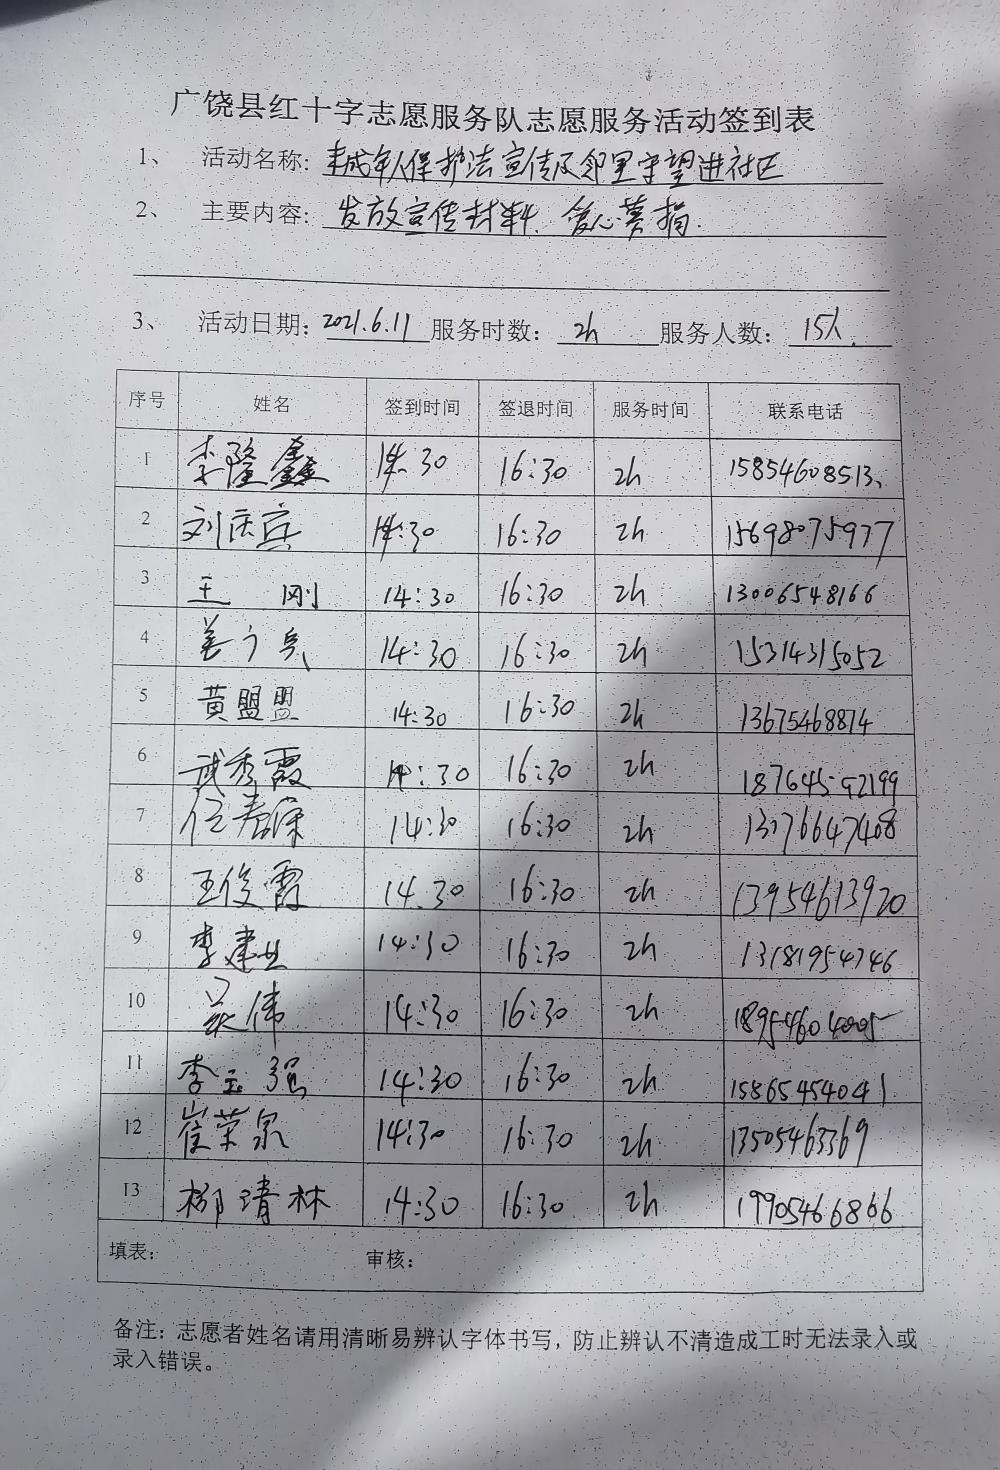 广饶县红十字志愿服务队志愿服务活动签到表
1、 活动名称: 未成年人保护法宣传及邻里守望进社区
2、 主要内容: 发放宣传材料、爱心募捐.
3、 活动日期: 2021.6.11 服务时数: 2h 服务人数: 15人.
序号 姓名 签到时间 签退时间 服务时间 联系电话
1 李隆鑫 14:30 16:30 2h 15854608513
2 刘庆兵 14:30 16:30 2h 15698075977
3 王刚 14:30 16:30 2h 13006548166
4 姜 14:30 16:30 2h 15314315052
5 黄盟盟 14:30 16:30 2h 13675468874
6 武秀霞 14:30 16:30 2h 18764592199
7 14:30 16:30 2h
8 王俊霞 14:30 16:30 2h 13954613920
9 李建业 14:30 16:30 2h 13181954746
10 伟 14:30 16:30 2h
11 李玉强 14:30 16:30 2h 15865454041
12 崔荣泉 14:30 16:30 2h 13505463369
13 柳清林 14:30 16:30 2h 19905466866
填表: 审核:
备注: 志愿者姓名请用清晰易辨认字体书写，防止辨认不清造成工时无法录入或
录入错误。